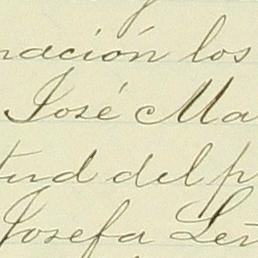 nación los
José Ma
tud del p
Josefa Leñ